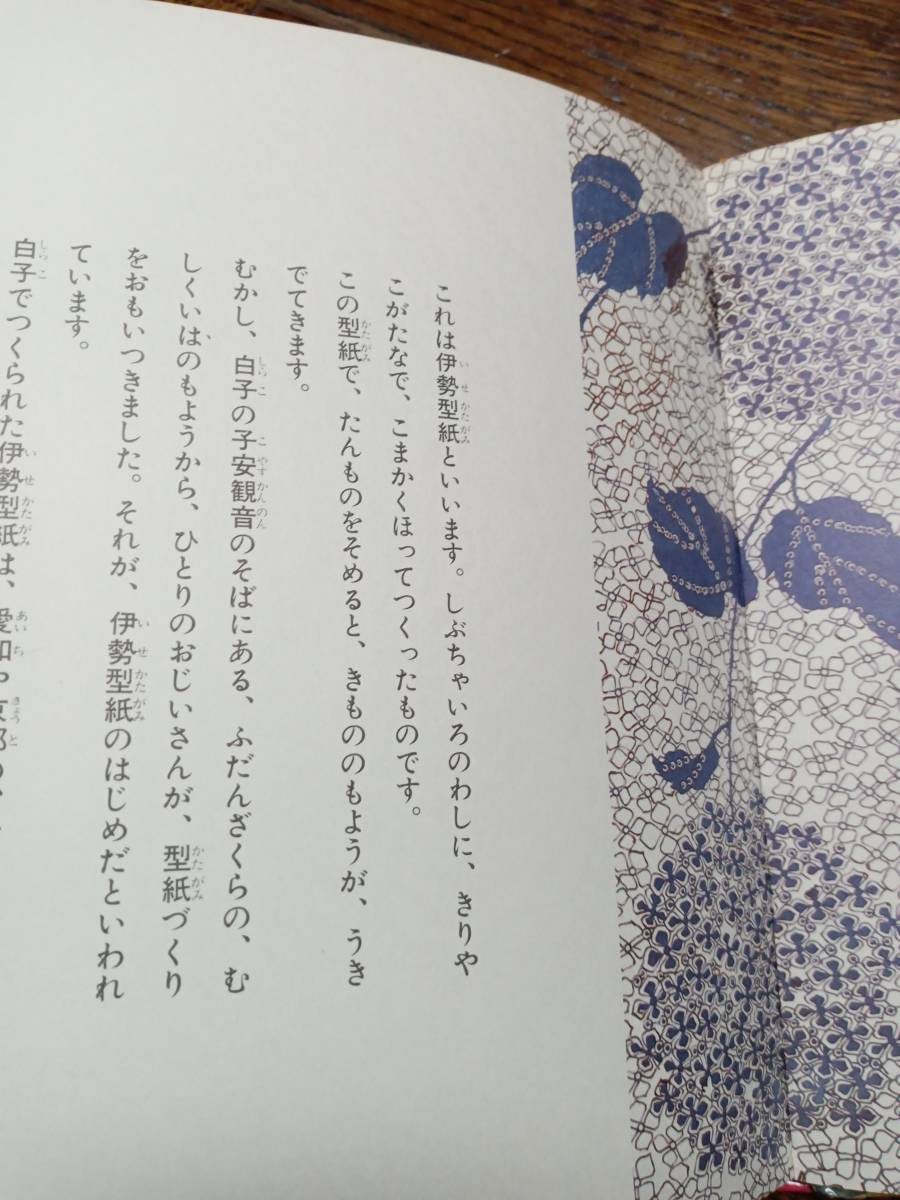 これは伊勢型紙といいます。しぶちゃいろのわしに、きりや
こがたなで、こまかくほってつくったものです。
この型紙で、たんものをそめると、きもののもようが、うき
でてきます。
むかし、白子の子安観音のそばにある、ふだんざくらの、む
しくいはのもようから、ひとりのおじいさんが、型紙づくり
をおもいつきました。それが、伊勢型紙のはじめだといわれ
ています。
白子でつくられた伊勢型紙は、愛知や京都の、